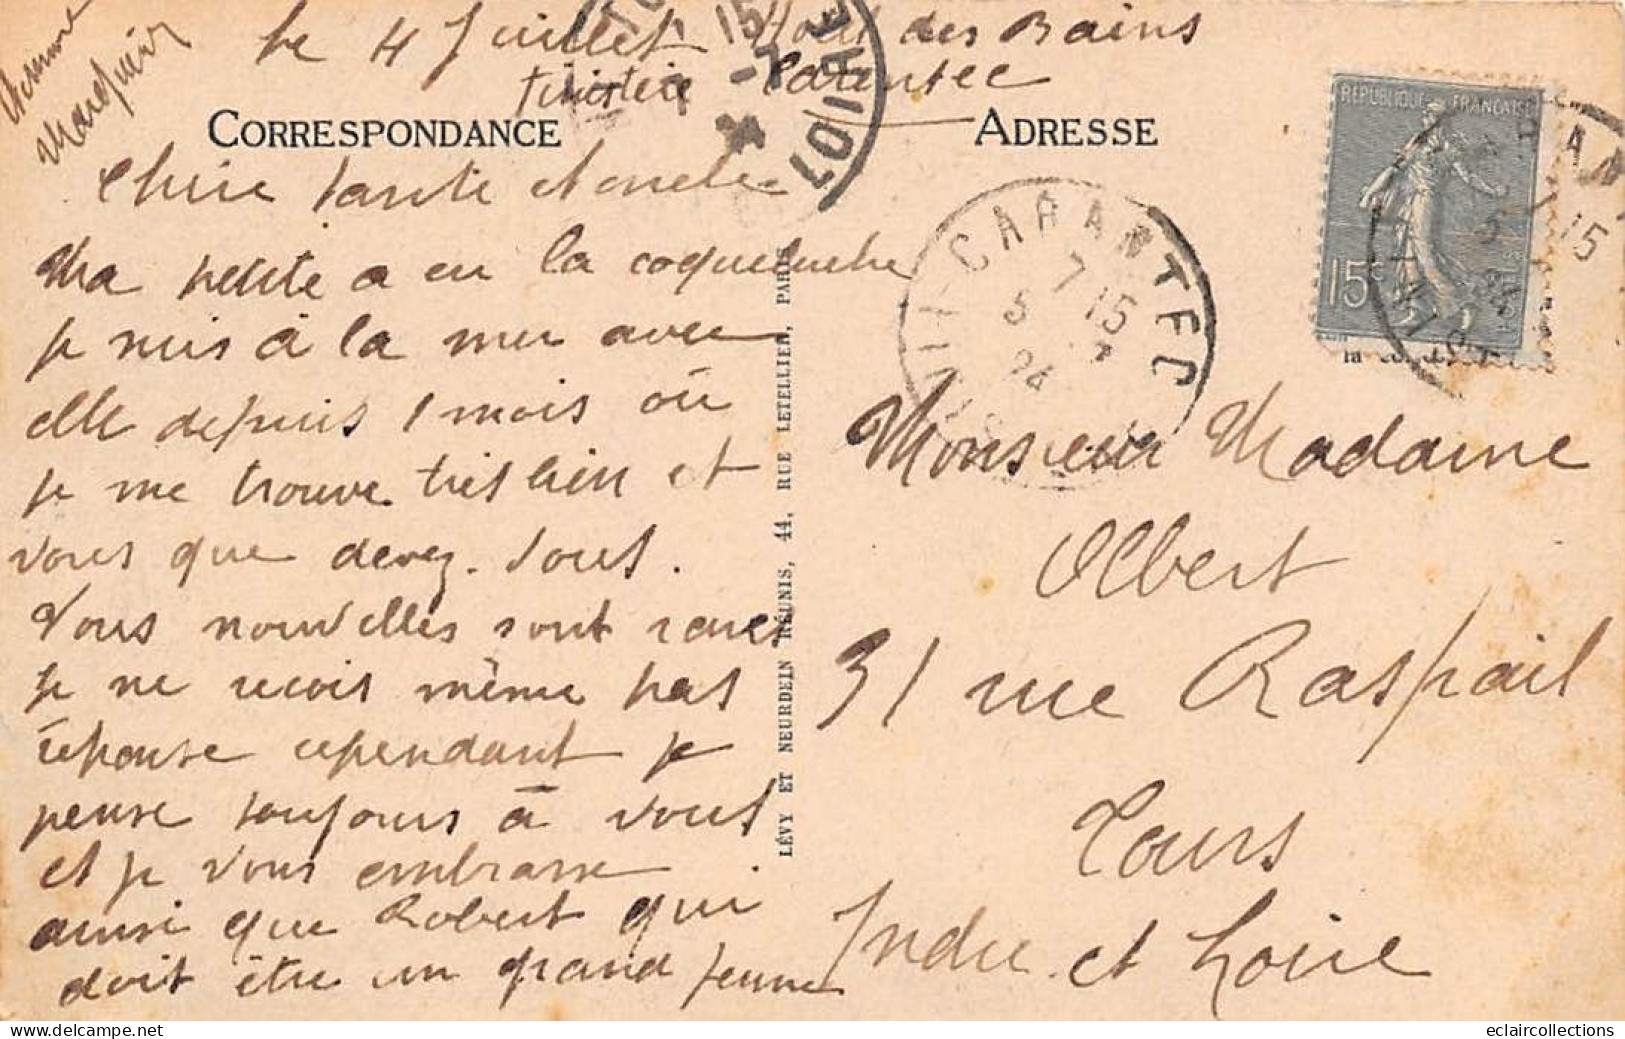 le 4 Juillet Hotel des Bains
Finistère Carentec
CORRESPONDANCE
ADRESSE
Chère tante et oncle
Ma petite a eu la coqueluche
je suis à la mer avec
elle depuis 1 mois où
je me trouve très bien et
vous que devez-vous.
Vous nouvelles sont rares
je ne reçois même pas
réponse cependant je
pense toujours à vous
et je vous embrasse
ainsi que Robert qui
doit être un grand jeune
Marquier
LÉVY ET NEURDEIN RÉUNIS, 44, RUE LETELLIER, PARIS
REPUBLIQUE FRANÇAISE
15c
CARANTEC
7 15
5 7
24
LOIRE
15
Monsieur Madame
Albert
31 rue Raspail
Tours
Indre et Loire
eclaircollections